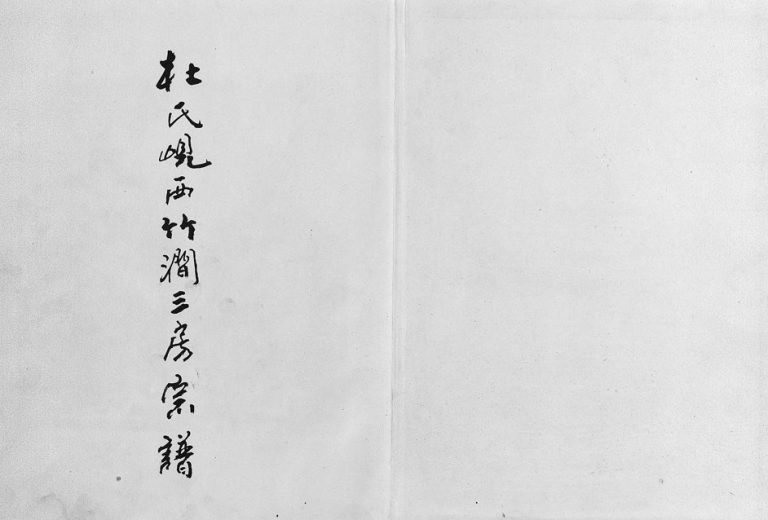 杜氏峴西竹澗三房宗譜